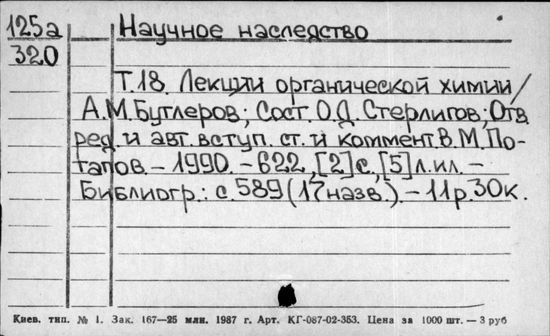 125а Научное наследство
320
Т.18. Лекции органической химии/
А.М.Бутлеров; Сост. О.Д. Стерлигов; Отв.
ред. и авт. вступ. ст. и коммент. В.М. По-
тапов. – 1990. – 622, [2] с., [5] л. ил. –
Библиогр.: с. 589 (17 назв.). – 11 р. 30 к.
Киев. тип. № 1. Зак. 167—25 млн. 1987 г. Арт. КГ-087-02-353. Цена за 1000 шт. — 3 руб